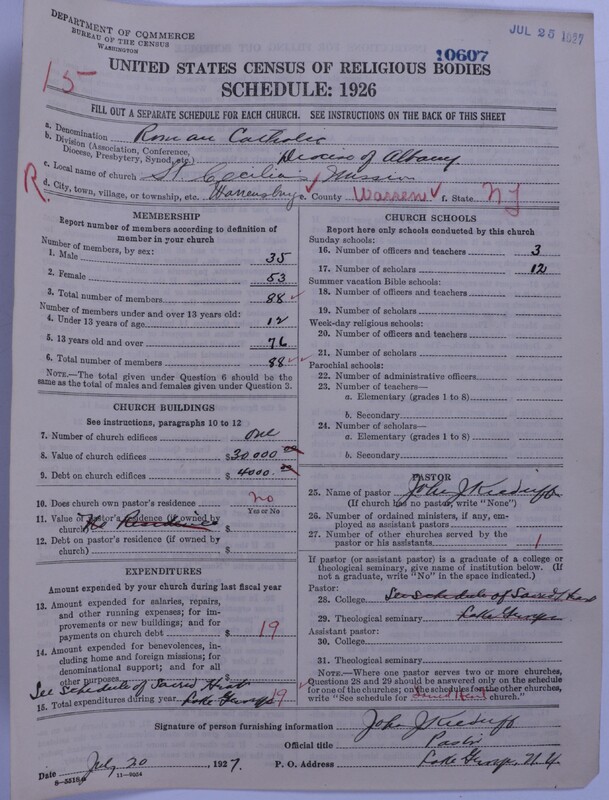 DEPARTMENT OF COMMERCE
BUREAU OF THE CENSUS
WASHINGTON
JUL 25 1927
10607
15
UNITED STATES CENSUS OF RELIGIOUS BODIES
SCHEDULE: 1926
FILL OUT A SEPARATE SCHEDULE FOR EACH CHURCH. SEE INSTRUCTIONS ON THE BACK OF THIS SHEET
a. Denomination Roman Catholic
b. Division (Association, Conference, Diocese, Presbytery, Synod, etc.) Diocese of Albany
c. Local name of church St. Cecilia Mission
R.
d. City, town, village, or township, etc. Warrensburg e. County Warren f. State NY
MEMBERSHIP
Report number of members according to definition of
member in your church
Number of members, by sex:
1. Male 35
2. Female 53
3. Total number of members 88
Number of members under and over 13 years old:
4. Under 13 years of age 12
5. 13 years old and over 76
6. Total number of members 88
NOTE.—The total given under Question 6 should be the
same as the total of males and females given under Question 3.
CHURCH BUILDINGS
See instructions, paragraphs 10 to 12
7. Number of church edifices one
8. Value of church edifices $30000
9. Debt on church edifices $4000.
10. Does church own pastor's residence no
Yes or No
11. Value of pastor's residence (if owned by
church) No Residence $
12. Debt on pastor's residence (if owned by
church) $
EXPENDITURES
Amount expended by your church during last fiscal year
13. Amount expended for salaries, repairs,
and other running expenses; for im-
provements or new buildings; and for
payments on church debt $ 19
14. Amount expended for benevolences, in-
cluding home and foreign missions; for
denominational support; and for all
other purposes $
See Schedule of Sacred Heart
15. Total expenditures during year Lake George 19
CHURCH SCHOOLS
Report here only schools conducted by this church
Sunday schools:
16. Number of officers and teachers 3
17. Number of scholars 12
Summer vacation Bible schools:
18. Number of officers and teachers
19. Number of scholars
Week-day religious schools:
20. Number of officers and teachers
21. Number of scholars
Parochial schools:
22. Number of administrative officers
23. Number of teachers—
a. Elementary (grades 1 to 8)
b. Secondary
24. Number of scholars—
a. Elementary (grades 1 to 8)
b. Secondary
PASTOR
25. Name of pastor John J
(If church has no pastor, write "None")
26. Number of ordained ministers, if any, em-
ployed as assistant pastors
27. Number of other churches served by the
pastor or his assistants 1
If pastor (or assistant pastor) is a graduate of a college or
theological seminary, give name of institution below. (If
not a graduate, write "No" in the space indicated.)
Pastor:
28. College See schedule of Sacred Heart
29. Theological seminary Lake George
Assistant pastor:
30. College
31. Theological seminary
NOTE.—Where one pastor serves two or more churches,
Questions 28 and 29 should be answered only on the schedule
for one of the churches; on the schedules for the other churches,
write "See schedule for Sacred Heart church."
Signature of person furnishing information John J
Official title Pastor
Date July 20 1927. P. O. Address Lake George, N.Y.
11—9024